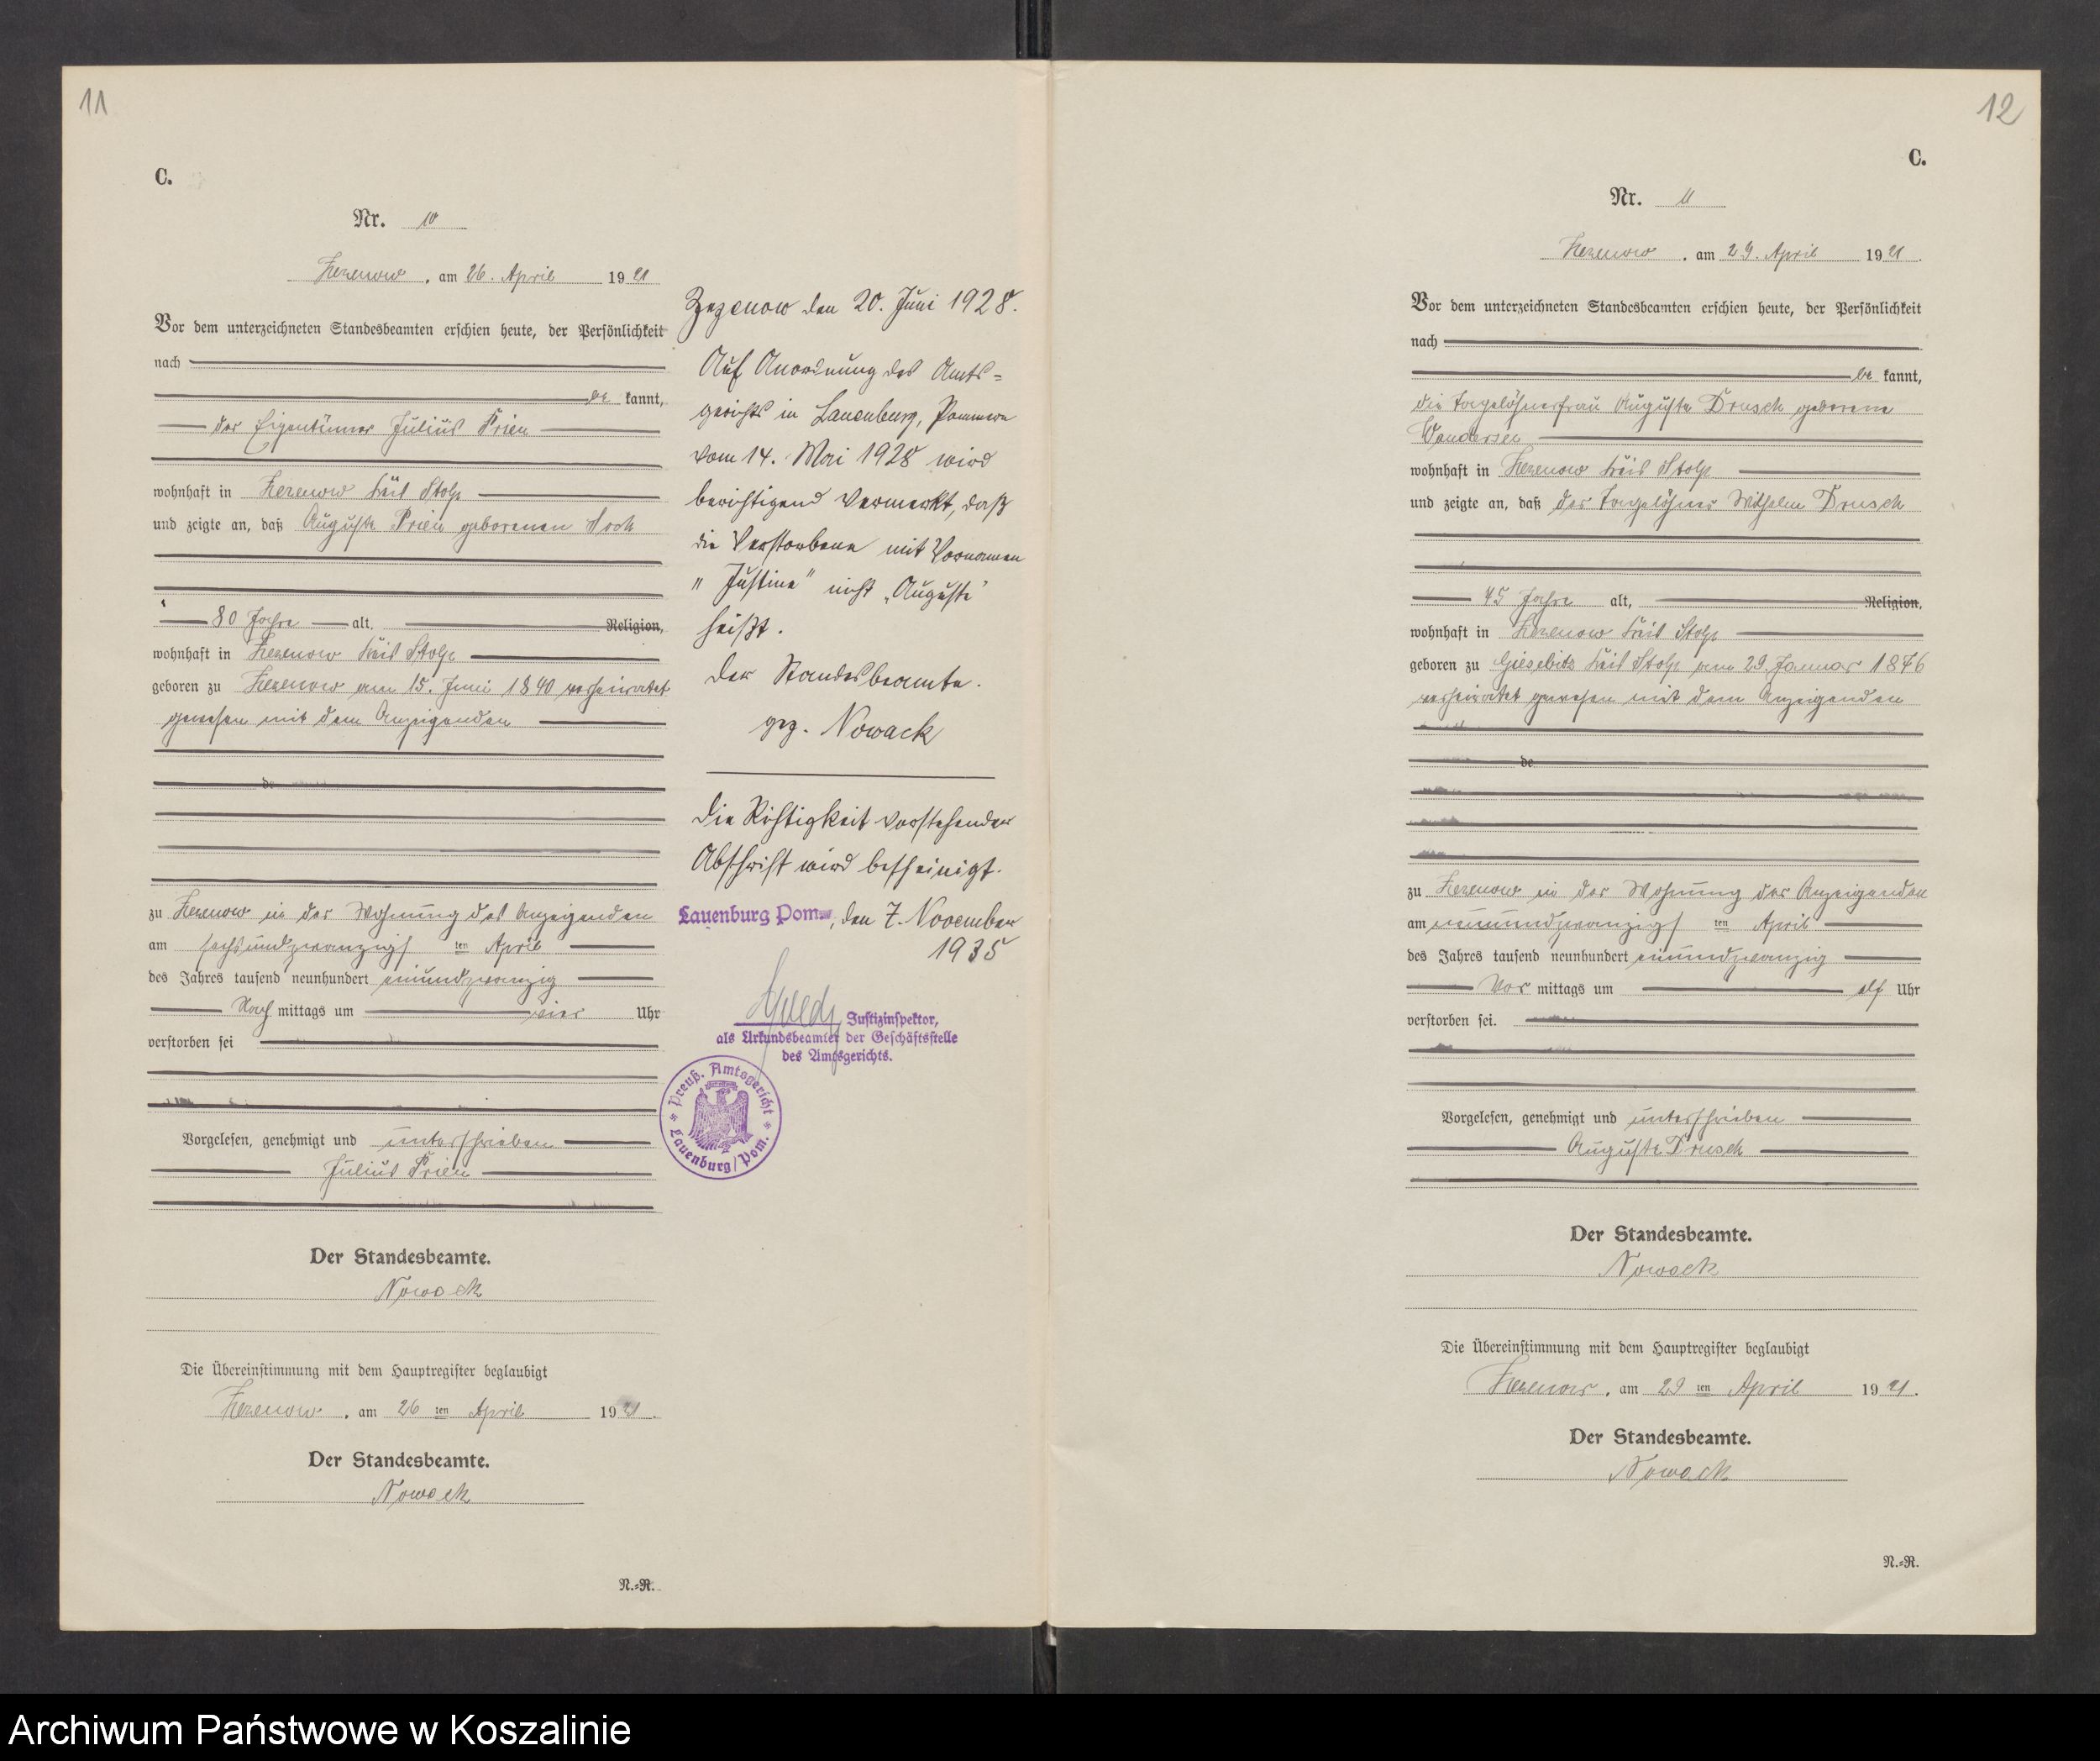 11
C.
Nr. 10
Zezenow, am 26. April 1921
Vor dem unterzeichneten Standesbeamten erschien heute, der Persönlichkeit
nach
be kannt,
der Eigentümer Julius Prien
wohnhaft in Zezenow Kreis Stolp
und zeigte an, daß Auguste Prien geborenen
80 Jahre alt, Religion,
wohnhaft in Zezenow Kreis Stolp
geboren zu Zezenow am 15. Juni 1840 verheiratet
gewesen mit dem Anzeigenden
de
zu Zezenow in der Wohnung des Anzeigenden
am sechsundzwanzigs ten April
des Jahres tausend neunhundert einundzwanzig
Nach mittags um vier Uhr
verstorben sei
Vorgelesen, genehmigt und unterschrieben
Julius Prien
Der Standesbeamte.
Nowack
Die Übereinstimmung mit dem Hauptregister beglaubigt
Zezenow, am 26 ten April 1921.
Der Standesbeamte.
Nowack
N.=R.
Zezenow den 20. Juni 1928.
Auf Anordnung des Amts=
gerichts in Lauenburg, Pommern
vom 14. Mai 1928 wird
berichtigend vermerkt, daß
die Verstorbene mit Vornamen
"Justine" nicht „Auguste"
heißt.
Der Standesbeamte.
gez. Nowack
Die Richtigkeit vorstehender
Abschrift wird bescheinigt.
Lauenburg Pom., den 7. November
1935
Justizinspektor,
als Urkundsbeamter der Geschäftsstelle
des Amtsgerichts.
Preuß. Amtsgericht
Lauenburg/Pom.
12
C.
Nr. 11
Zezenow, am 29. April 1921.
Vor dem unterzeichneten Standesbeamten erschien heute, der Persönlichkeit
nach
be kannt,
die Tagelöhnerfrau Auguste Drusch geborene
wohnhaft in Zezenow Kreis Stolp
und zeigte an, daß der Tagelöhner Wilhelm Drusch
45 Jahre alt, Religion,
wohnhaft in Zezenow Kreis Stolp
geboren zu Giesebitz Kreis Stolp am 29. Januar 1876
verheiratet gewesen mit dem Anzeigenden
de
zu Zezenow in der Wohnung der Anzeigenden
am neunundzwanzigs ten April
des Jahres tausend neunhundert einundzwanzig
Vor mittags um elf Uhr
verstorben sei.
Vorgelesen, genehmigt und unterschrieben
Auguste Drusch
Der Standesbeamte.
Nowack
Die Übereinstimmung mit dem Hauptregister beglaubigt
Zezenow, am 29 ten April 1921.
Der Standesbeamte.
Nowack
N.=R.
Archiwum Państwowe w Koszalinie